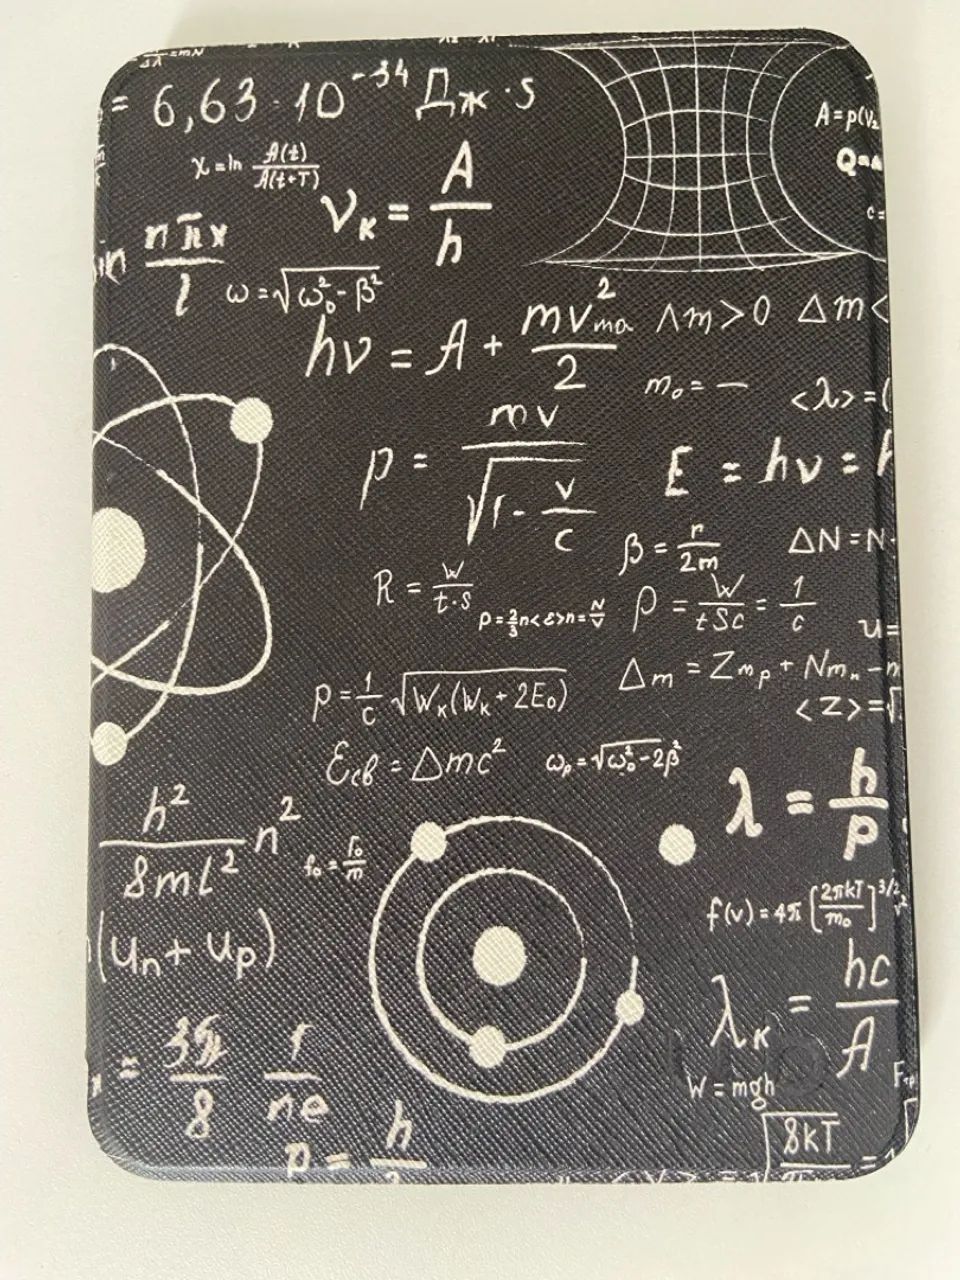 = 6,63 · 10⁻³⁴ Дж · s
A(t)
χ = ln ———
A(t+T)
ν_K = A/h
A = p(V₂
Q =
c =
in nπx/l
ω = √(ω₀² - β²)
hν = A + mv²ₘₐ/2
Λm > 0
Δm <
m₀ = —
<λ> = (
p = mv/√(1 - v/c)
E = hν = h
β = r/2m
ΔN = N -
R = W/t·s
p = 2/3 n<ε> n = N/V
ρ = W/tSc = 1/c
u =
Δm = Zmₚ + Nmₙ - m
<Z> = √
p = 1/c √(W_K(W_K + 2E₀)
Ɛ_св = Δmc²
ωₚ = √(ω₀² - 2β²)
λ = h/p
h²/8ml² n²
f₀ = r₀/m
f(v) = 4π [2πkT/m₀]^3/2 v²
(uₙ + uₚ)
λ_K = hc/A
= 3π/8
1/ne
W = mgh
Fтр
p = h/
√8kT/π
=